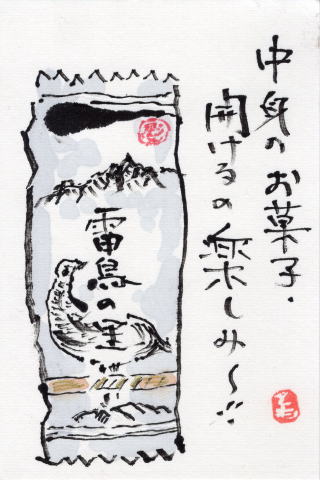 中身のお菓子・
開けるの楽しみ〜
雷鳥の里